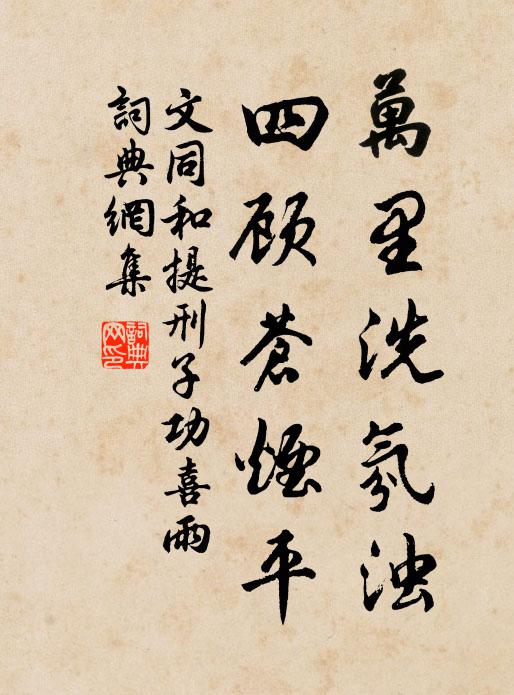 萬里洗氛浊
四顾蒼煙平
文同和提刑子功喜雨
詞典網集
詞典网印